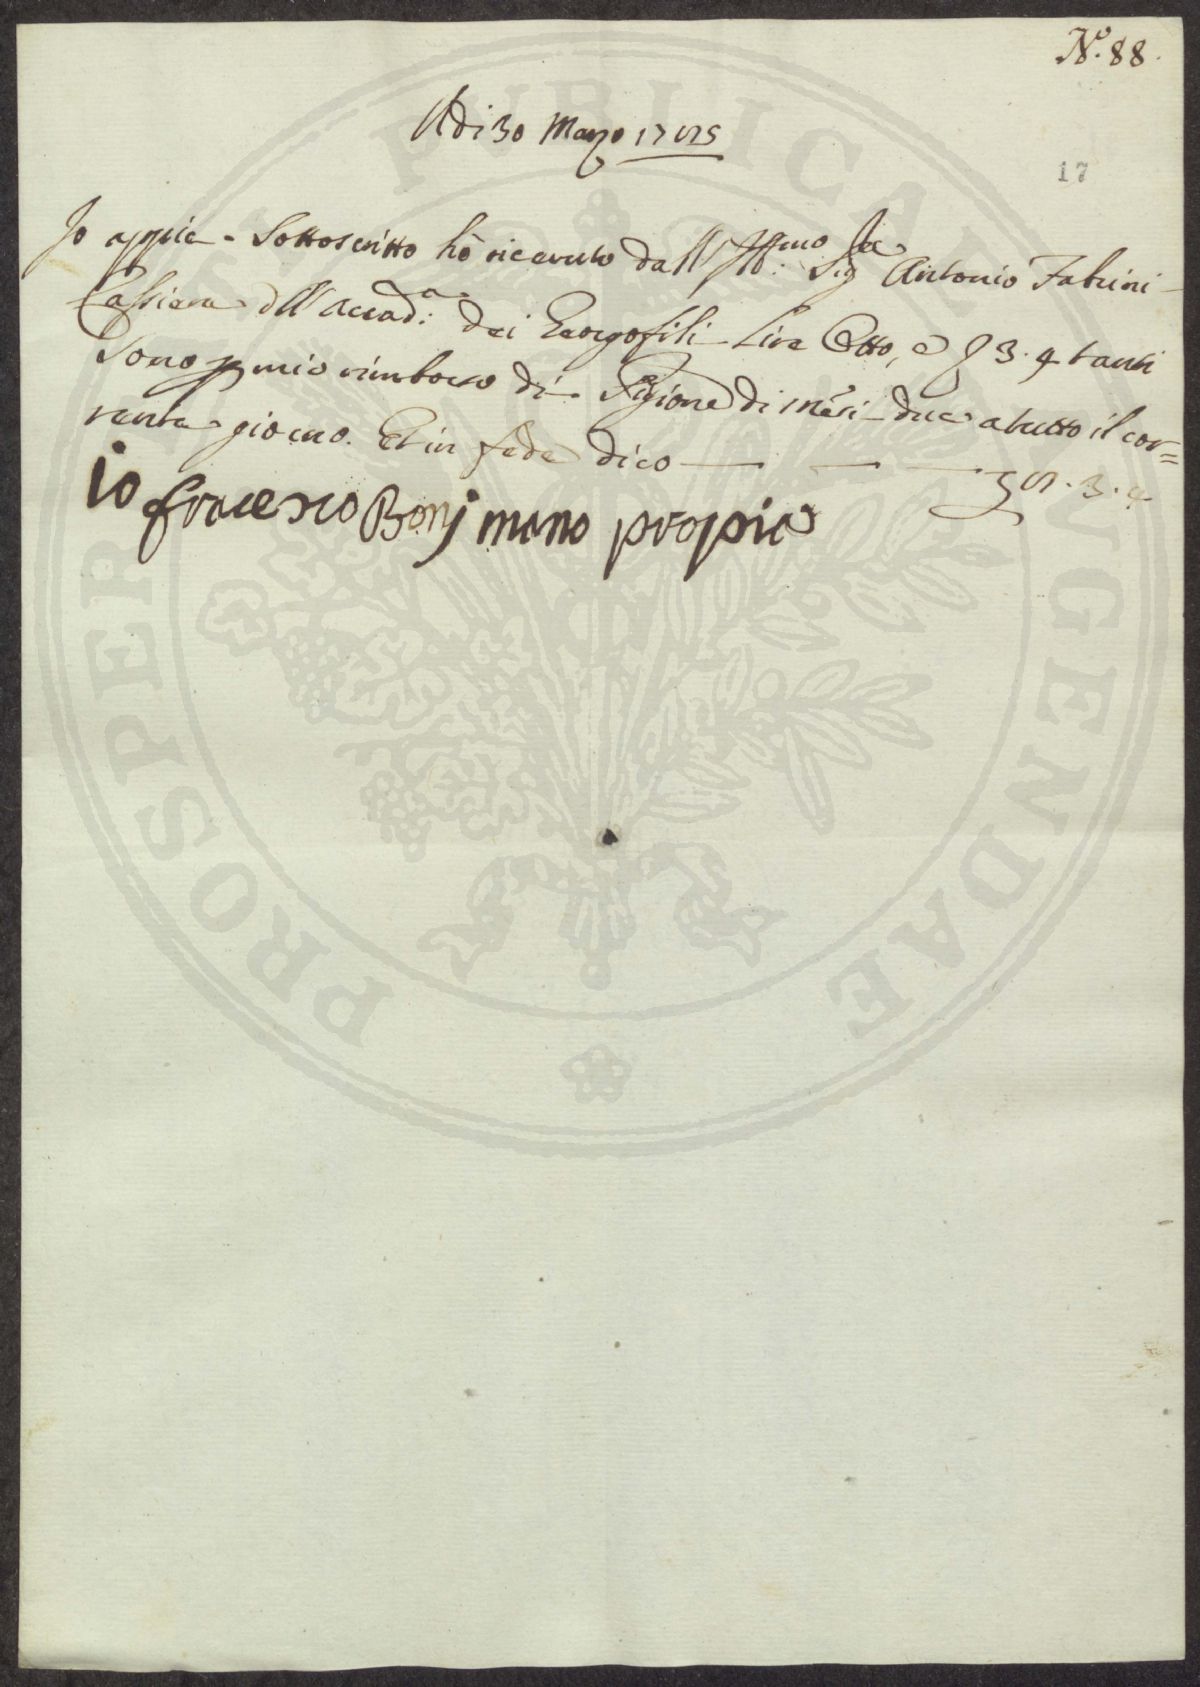 N.° 88.
Adi 30 Marzo 1785
17
Io appiè - Sottoscritto hò ricevuto dall' Ill:mo Sig.re Antonio Fabrini -
Cassiere dell' Accad:a dei Georgofili - Lire Otto, e 3. 4 tanti
Sono p mio rimborso di - Pigione di mesi - due a tutto il cor=
rente giorno. Et in fede dico — — — 8. 3. 4
io fracesco Bonj mano propia
PROSPERITATI PUBLICAE AUGENDAE